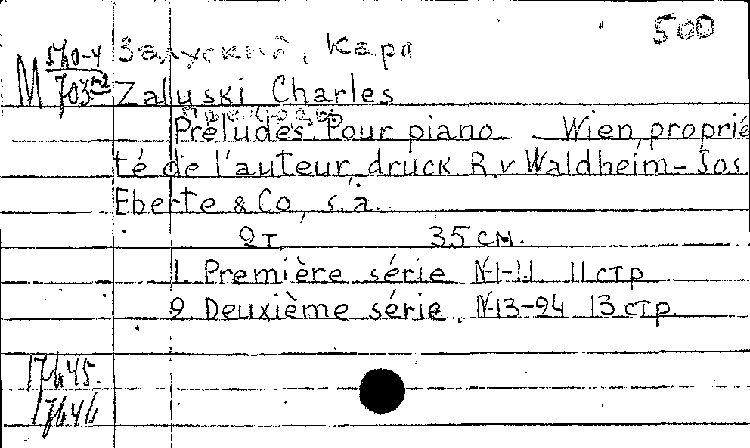 500
Залуский, Карл
М 570-4
703
Zaluski Charles
Préludes. Pour piano. Wien, proprié
té de l'auteur, druck R. v Waldheim-Jos.
Eberte & Co, s. a.
2 т. 35 см.
1. Première série N 1-11 11 стр
2. Deuxième série. N 13-24 13 стр.
17645.
17646